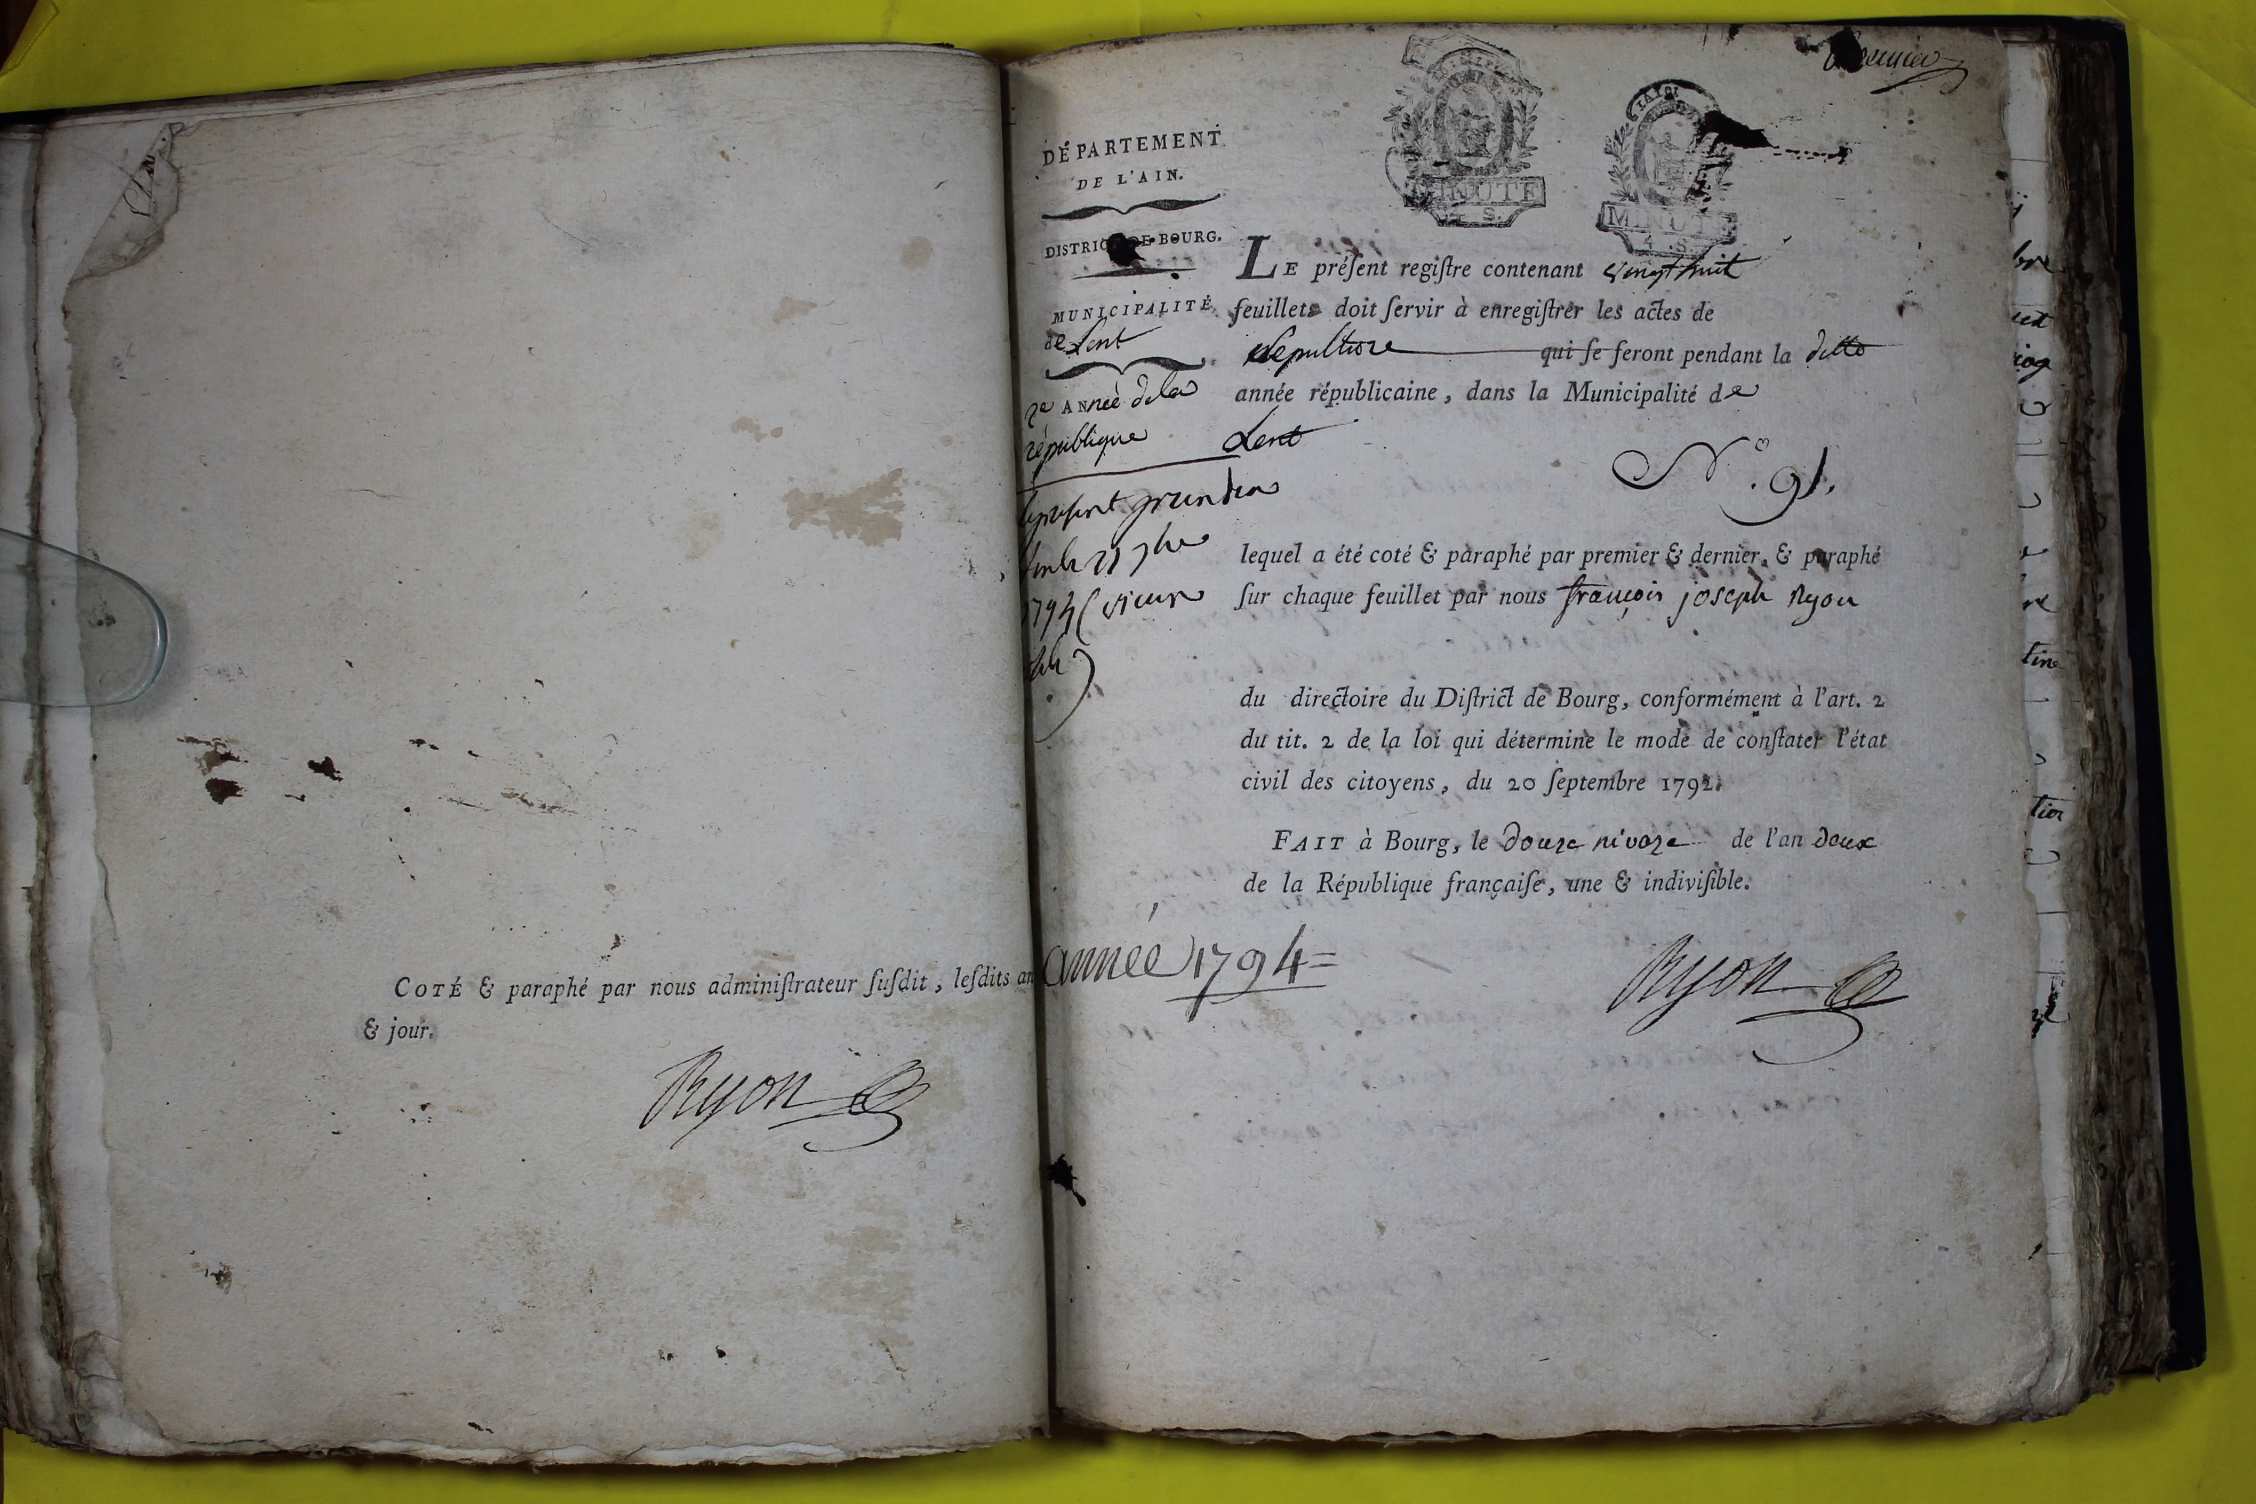 COTÉ & paraphé par nous adminiſtrateur ſuſdit, leſdits an
& jour.
Ryon
premier
MINUTE
4. S.
MINUTE
4. S.
DÉPARTEMENT
DE L'AIN.
DISTRICT DE BOURG.
MUNICIPALITÉ
de Lent
2e ANNée de la
republique
LE préſent regiſtre contenant vingt huit
feuillets doit ſervir à enregiſtrer les actes de
sepulture qui ſe feront pendant la ditte
année républicaine, dans la Municipalité de
Lent
N.o 91.
le present
1794 (vieux
lequel a été coté & paraphé par premier & dernier, & paraphé
ſur chaque feuillet par nous françois joseph Ryon
du directoire du Diſtrict de Bourg, conformément à l'art. 2
du tit. 2 de la loi qui détermine le mode de conſtater l'état
civil des citoyens, du 20 ſeptembre 1792.
FAIT à Bourg, le douze nivoze de l'an deux
de la République françaiſe, une & indiviſible.
année 1794=
Ryon